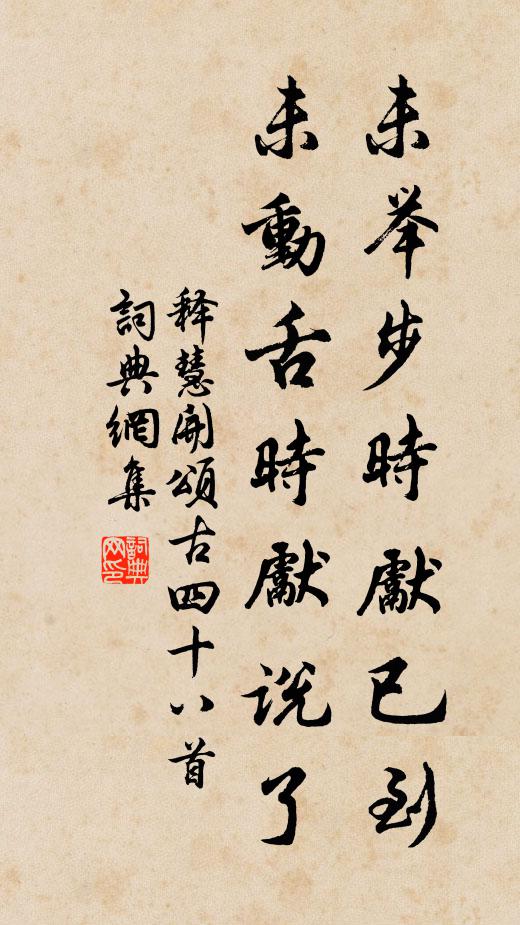 未举步時獻已到
未動舌時獻説了
释慧開頌古四十八首
詞典網集
詞典网印